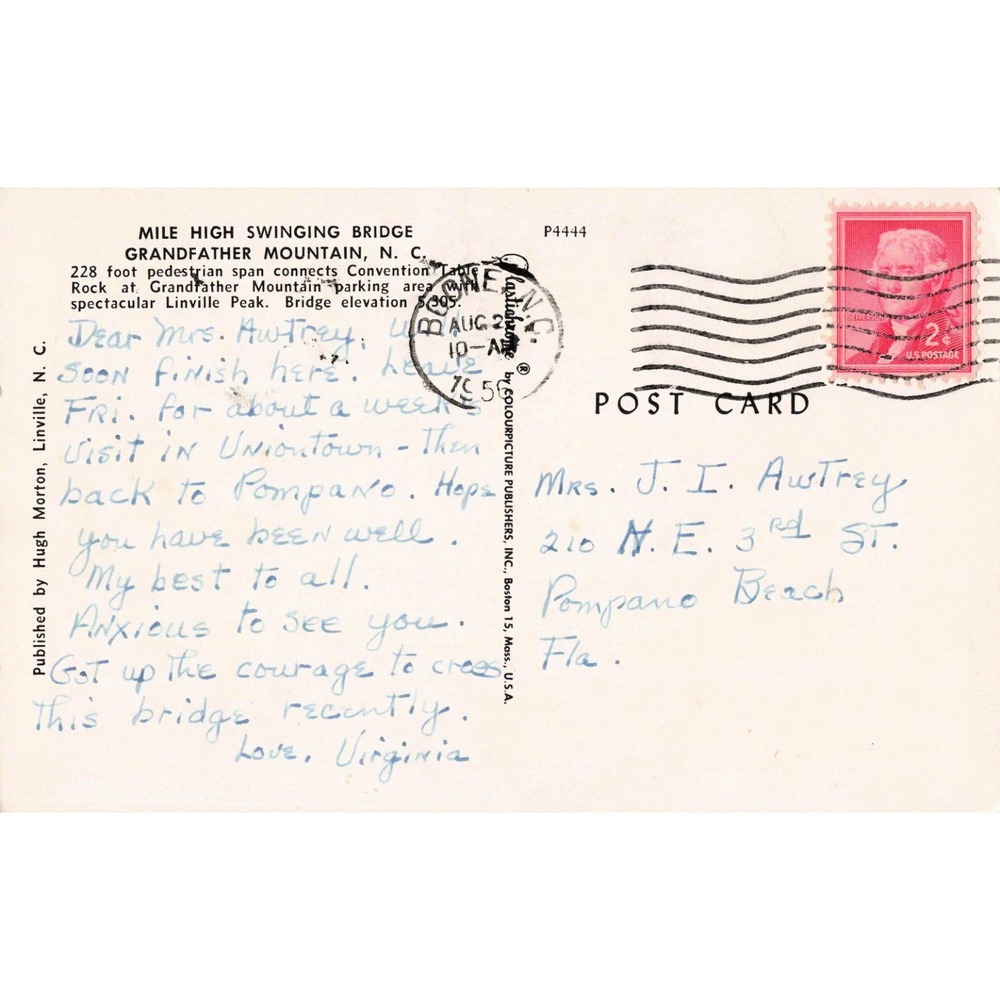 MILE HIGH SWINGING BRIDGE
GRANDFATHER MOUNTAIN, N. C.
228 foot pedestrian span connects Convention Table
Rock at Grandfather Mountain parking area with
spectacular Linville Peak. Bridge elevation 5,305.
Dear Mrs. Awtrey, Will
soon finish here. Leave
Fri. for about a week's
visit in Uniontown - Then
back to Pompano. Hope
you have been well.
My best to all.
Anxious to see you.
Got up the courage to cross
this bridge recently.
Love, Virginia
Published by Hugh Morton, Linville, N. C.
Plastichrome ® by COLOURPICTURE PUBLISHERS, INC., Boston 15, Mass., U.S.A.
P4444
BOONE, N.C.
AUG 2
10-AM
1956
JEFFERSON
2¢
U.S. POSTAGE
POST CARD
Mrs. J. I. Awtrey
210 N. E. 3rd St.
Pompano Beach
Fla.